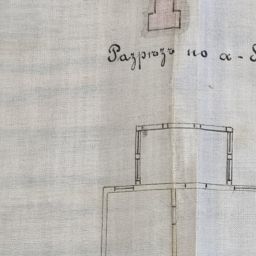 Разрѣзъ по а-